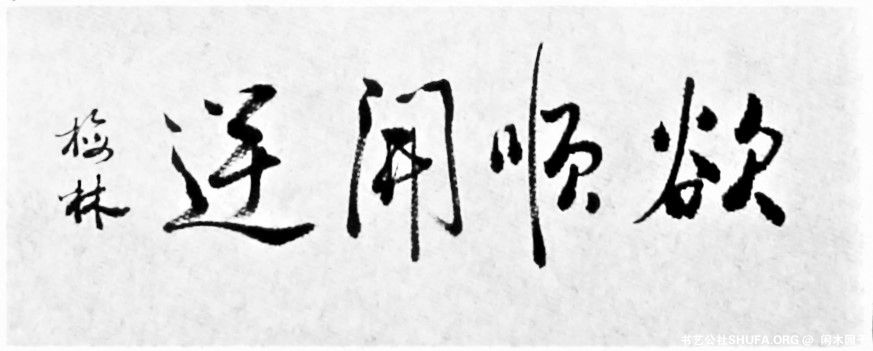 欲顺開逆
梅林
书艺公社SHUFA.ORG @ 闲木园子